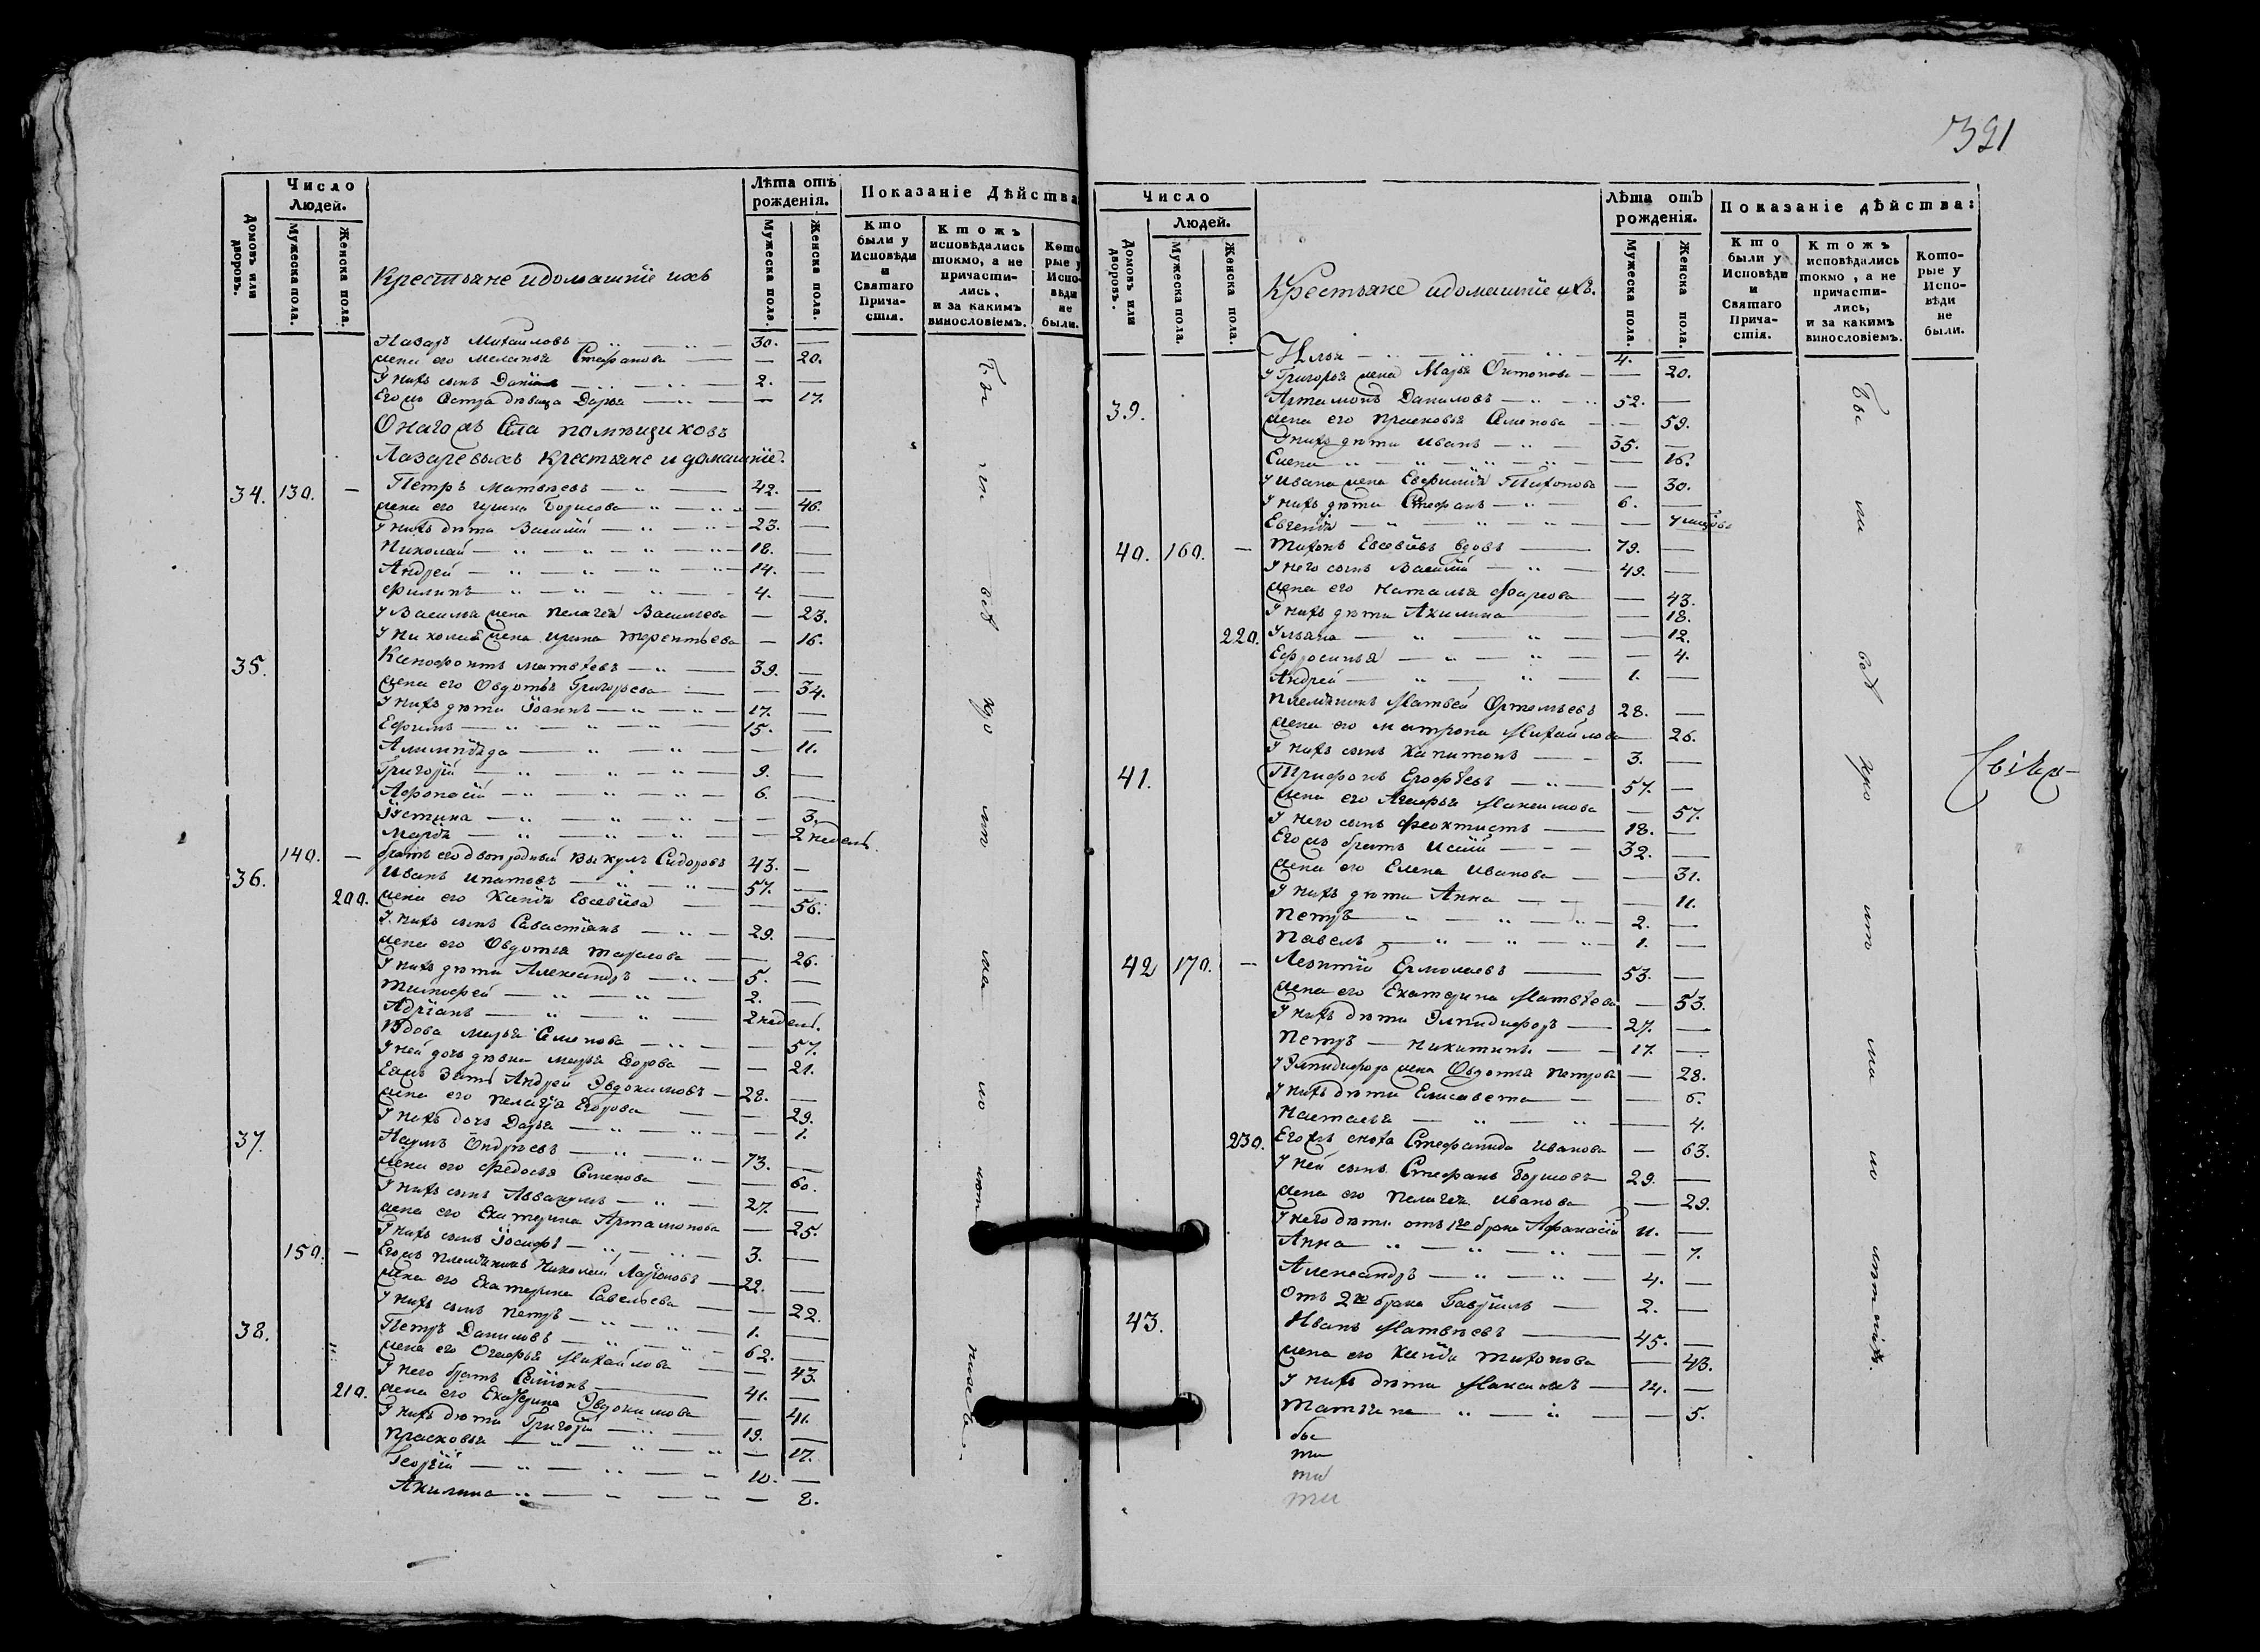 391
Домовъ или дворовъ.
Число Людей.
Мужеска пола.
Женска пола.
Крестьяне идомашніе ихъ
Лѣта отъ рожденія.
Мужеска пола.
Женска пола.
Показаніе Дѣйства
Кто были у Исповѣди и Святаго Причастія.
Ктожъ исповѣдались токмо, а не причастились, и за какимъ винословіемъ.
Которые у Исповѣди не были.
Назаръ Михаиловъ 30. —
жена его Меланья Стефанова — 20.
У нихъ сынъ 2. —
Егожъ Сестра дѣвица Дарья — 17.
Онагожъ Села помѣщиковъ
Лазаревыхъ крестьяне и домашніе.
34. 130. — Петръ Матвѣевъ 42. —
жена его Ирина Борисова — 46.
У нихъ дѣти Василій 23. —
Николай 18. —
Андрей 14. —
Филипъ 4. —
У Василья жена Пелагея Васильева — 23.
У Николая жена Ирина Терентьева — 16.
35. Ксенофонтъ Матвѣевъ 39. —
жена его Овдотья Григорьева — 34.
У нихъ дѣти Іоаннъ 17. —
Ефимъ 15. —
— 11.
Григорій 9. —
Афонасій 6. —
Іустина — 3.
Марія — 2 недель.
140. — братъ его двоюродный Викулъ Сидоровъ 43. —
36. Иванъ Ипатовъ 57. —
200. жена его Ксенія Евсевіева — 56.
У нихъ сынъ Савастіанъ 29. —
жена его Овдотья Тарасова — 26.
У нихъ дѣти Александръ 5. —
Тимофей 2. —
Адріанъ 2 недель.
Вдова Марья Семенова — 57.
У ней дочь дѣвка Марья Егорова — 21.
Еяжъ Зять Андрей Эвдокимовъ 28. —
жена его Пелагея Егорова — 29.
У нихъ дочь Дарья — 1.
37. Наумъ Ондреевъ 73. —
жена его Федосья Семенова — 60.
У нихъ сынъ Аввакумъ 27. —
жена его Екатерина Артамонова — 25.
У нихъ сынъ Іосифъ 3. —
150. — Егожъ племянникъ Николай Ларіоновъ 22. —
жена его Екатерина Савельева — 22.
У нихъ сынъ Петръ 1. —
38. Петръ Даниловъ 62. —
жена его Огафья Михайлова — 43.
У него братъ Семіонъ 41. —
210. жена его Екатерина Эвдокимова — 41.
У нихъ дѣти Григорій 19. —
Прасковья — 17.
Георгій 10. —
Акилина — 8.
Домовъ или дворовъ.
Число Людей.
Мужеска пола.
Женска пола.
Крестьяне идомашніе ихъ.
Лѣта отъ рожденія.
Мужеска пола.
Женска пола.
Показаніе дѣйства:
Кто были у Исповѣди и Святаго Причастія.
Ктожъ исповѣдались токмо, а не причастились, и за какимъ винословіемъ.
Которые у Исповѣди не были.
Илья 4. —
У Григорья жена Марья Онтонова — 20.
39. Артамонъ Даниловъ 52. —
жена его Прасковья Семенова — 59.
У нихъ дѣти Иванъ 35. —
Елена — 16.
У Ивана жена Ефимія Тихонова — 30.
У нихъ дѣти Стефанъ 6. —
Евгенія —
40. 160. — Тихонъ Евсевіевъ вдовъ 79. —
У него сынъ Василій 49. —
жена его Наталья — 43.
У нихъ дѣти Акилина — 18.
220. Ульяна — 12.
Ефросинья — 4.
Андрей 1. —
Племянникъ Матвей 28. —
жена его Матрона Михайлова — 26.
У нихъ сынъ Капитонъ 3. —
41. Трифонъ Ерофѣевъ 57. —
жена его Агафья Максимова — 57.
У него сынъ Феоктистъ 18. —
Егожъ братъ 32. —
жена его Елена Иванова — 31.
У нихъ дѣти Анна — 11.
Петръ 2. —
Павелъ 1. —
42 170. — Леонтій Ермолаевъ 53. —
жена его Екатерина Матвѣева — 53.
У нихъ дѣти Элпидифоръ 27. —
Петръ — Никитинъ 17. —
У Элпидифора жена Овдотья Петрова — 28.
У нихъ дѣти Елисавета — 6.
Настасья — 4.
230. Егожъ сноха Стефанида Иванова — 63.
У ней сынъ Стефанъ Борисовъ 29. —
жена его Пелагея Иванова — 29.
У него дѣти отъ 1го брака Афанасій 11. —
Анна — 7.
Александръ 4. —
Отъ 2го брака Гавріилъ 2. —
43. Иванъ Матвѣевъ 45. —
жена его Ксенія Тихонова — 43.
У нихъ дѣти Максимъ 14. —
Татьяна — 5.